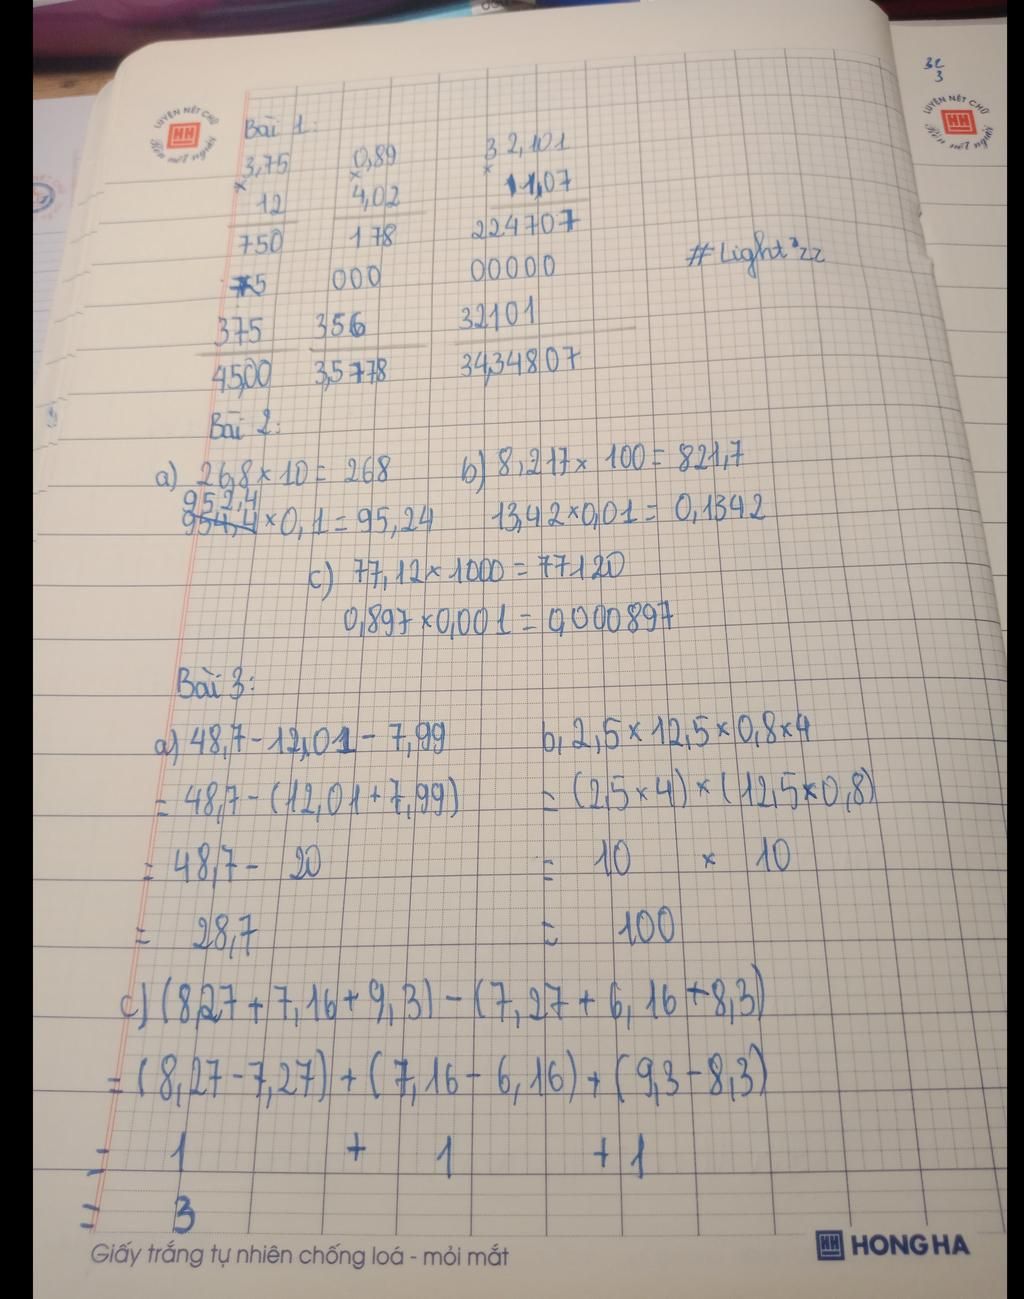 3c
3
LUYỆN NÉT CHỮ
HH
Rèn nết người
LUYỆN NÉT CHỮ
HH
Rèn nết người
Bài 1:
3,75 0,89 3 2,101
× × ×
12 4,02 11,07
750 178 224707
000 00000
#Light'zz
375 356 32101
45,00 3,5778 34,34807
Bài 2:
a) 26,8 × 10 = 268 b) 8,217 × 100 = 821,7
952,4
954,4 × 0,1 = 95,24 13,42 × 0,01 = 0,1342
c) 77,12 × 1000 = 77120
0,897 × 0,001 = 0,000897
Bài 3:
a) 48,7 - 12,01 - 7,99 b, 2,5 × 12,5 × 0,8 × 4
= 48,7 - (12,01 + 7,99) = (2,5 × 4) × (12,5 × 0,8)
= 48,7 - 20 = 10 × 10
= 28,7 = 100
c) (8,27 + 7,16 + 9,3) - (7,27 + 6,16 + 8,3)
= (8,27 - 7,27) + (7,16 - 6,16) + (9,3 - 8,3)
= 1 + 1 + 1
= 3
Giấy trắng tự nhiên chống loá - mỏi mắt
HH HONG HA